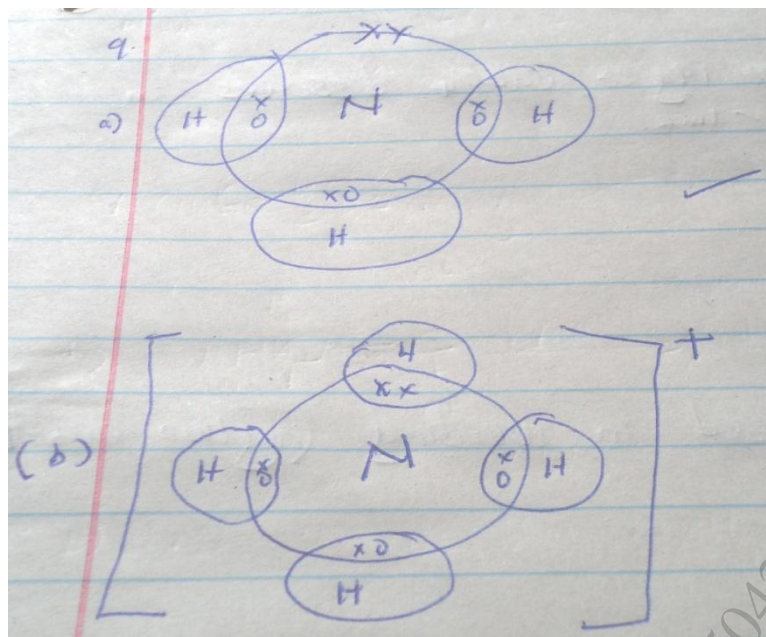 9.
xx
a) H x o N x o H
xo
H
[ ]+
H
xx
(b) H x o N x o H
xo
H